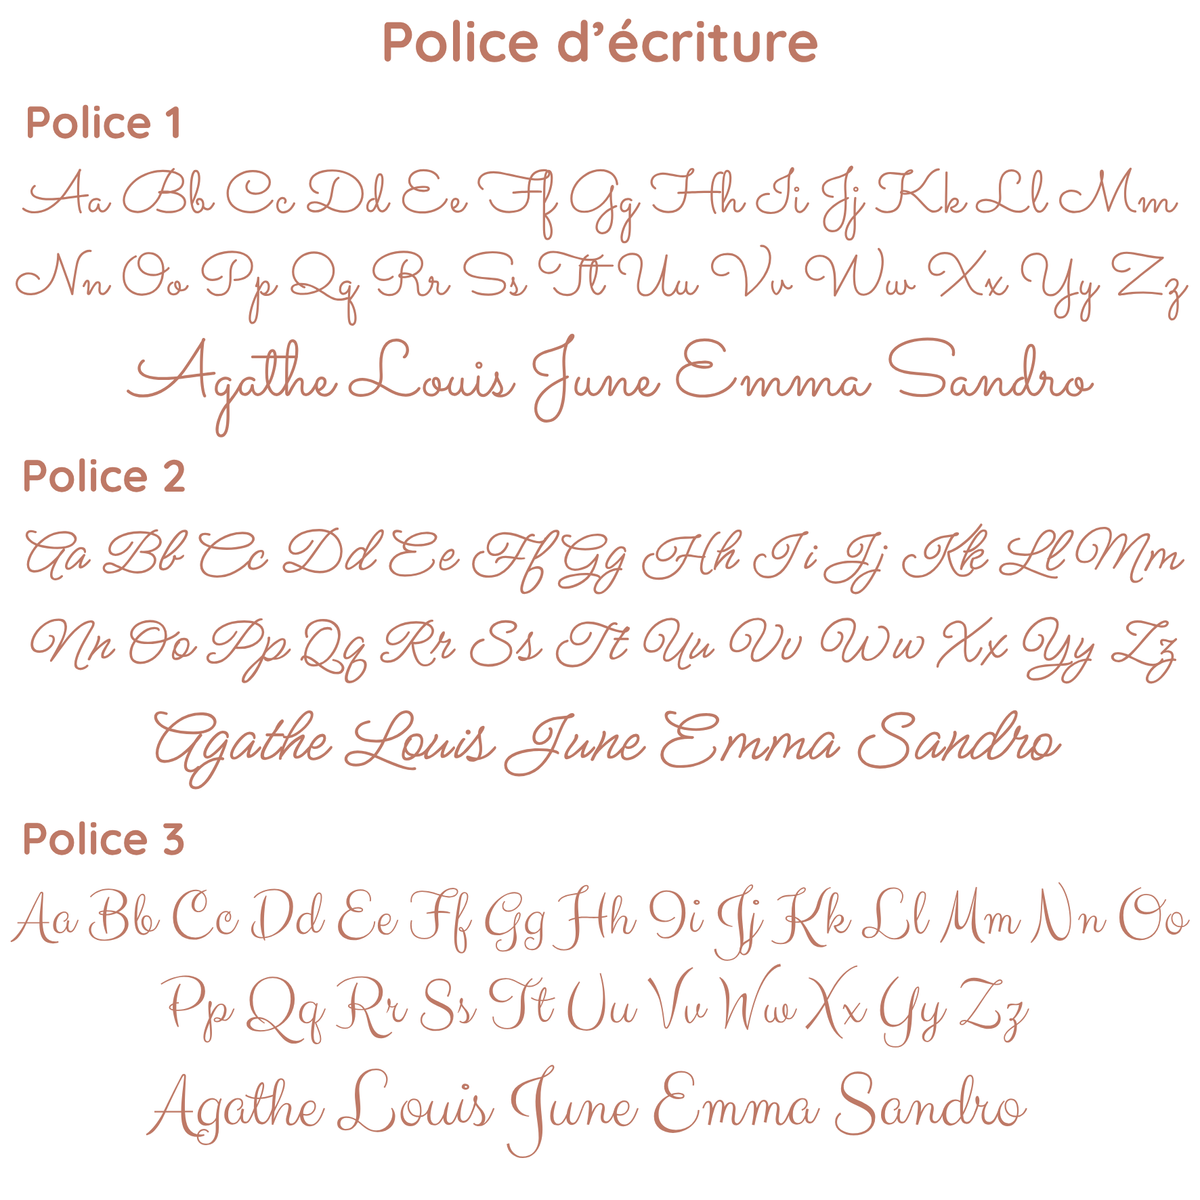 Police d’écriture
Police 1
Aa Bb Cc Dd Ee Ff Gg Hh Ii Jj Kk Ll Mm
Nn Oo Pp Qq Rr Ss Tt Uu Vv Ww Xx Yy Zz
Agathe Louis June Emma Sandro
Police 2
Aa Bb Cc Dd Ee Ff Gg Hh Ii Jj Kk Ll Mm
Nn Oo Pp Qq Rr Ss Tt Uu Vv Ww Xx Yy Zz
Agathe Louis June Emma Sandro
Police 3
Aa Bb Cc Dd Ee Ff Gg Hh Ii Jj Kk Ll Mm Nn Oo
Pp Qq Rr Ss Tt Uu Vv Ww Xx Yy Zz
Agathe Louis June Emma Sandro